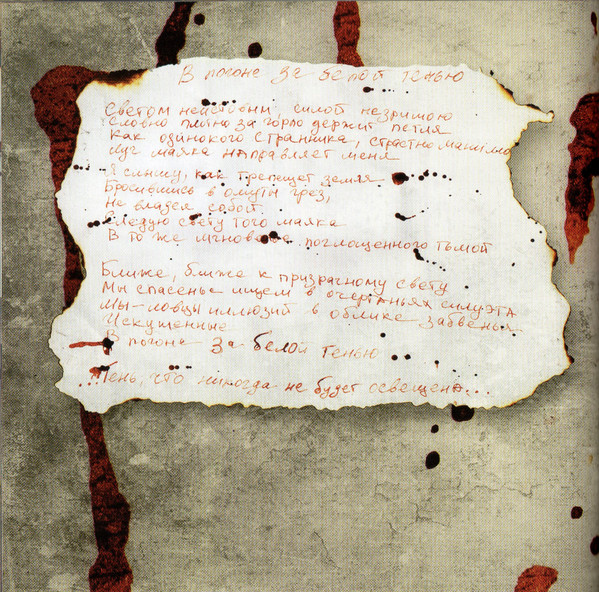 В погоне за белой тенью
Светом неистовым силой незримою
Словно плотно за горло держит петля
Как одинокого странника, страстно манимого
Луч маяка направляет меня
Я слышу, как трепещет земля
Бросившись в омуты грез,
Не владея собой
Следую свету того маяка
В то же мгновенье поглощенного тьмой
Ближе, ближе к призрачному свету
Мы спасенье ищем в очертаньях силуэта
Мы-ловцы иллюзий в облике забвенья
Искушенные
В погоне за белой тенью
...Тень, что никогда не будет освещена...